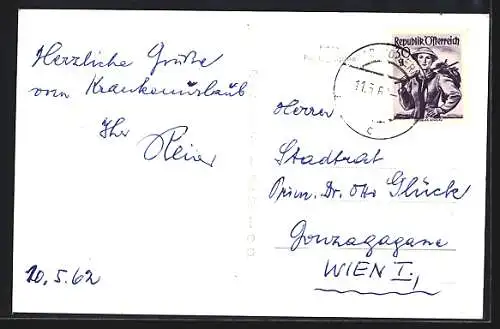 Herzliche Grüße
vom Krankenurlaub
Ihr
10.5.62
Republik Österreich
30 g
11.5.6
c
Herrn
Stadtrat
Prim. Dr. Otto Glück
Gonzagagasse
WIEN I.,